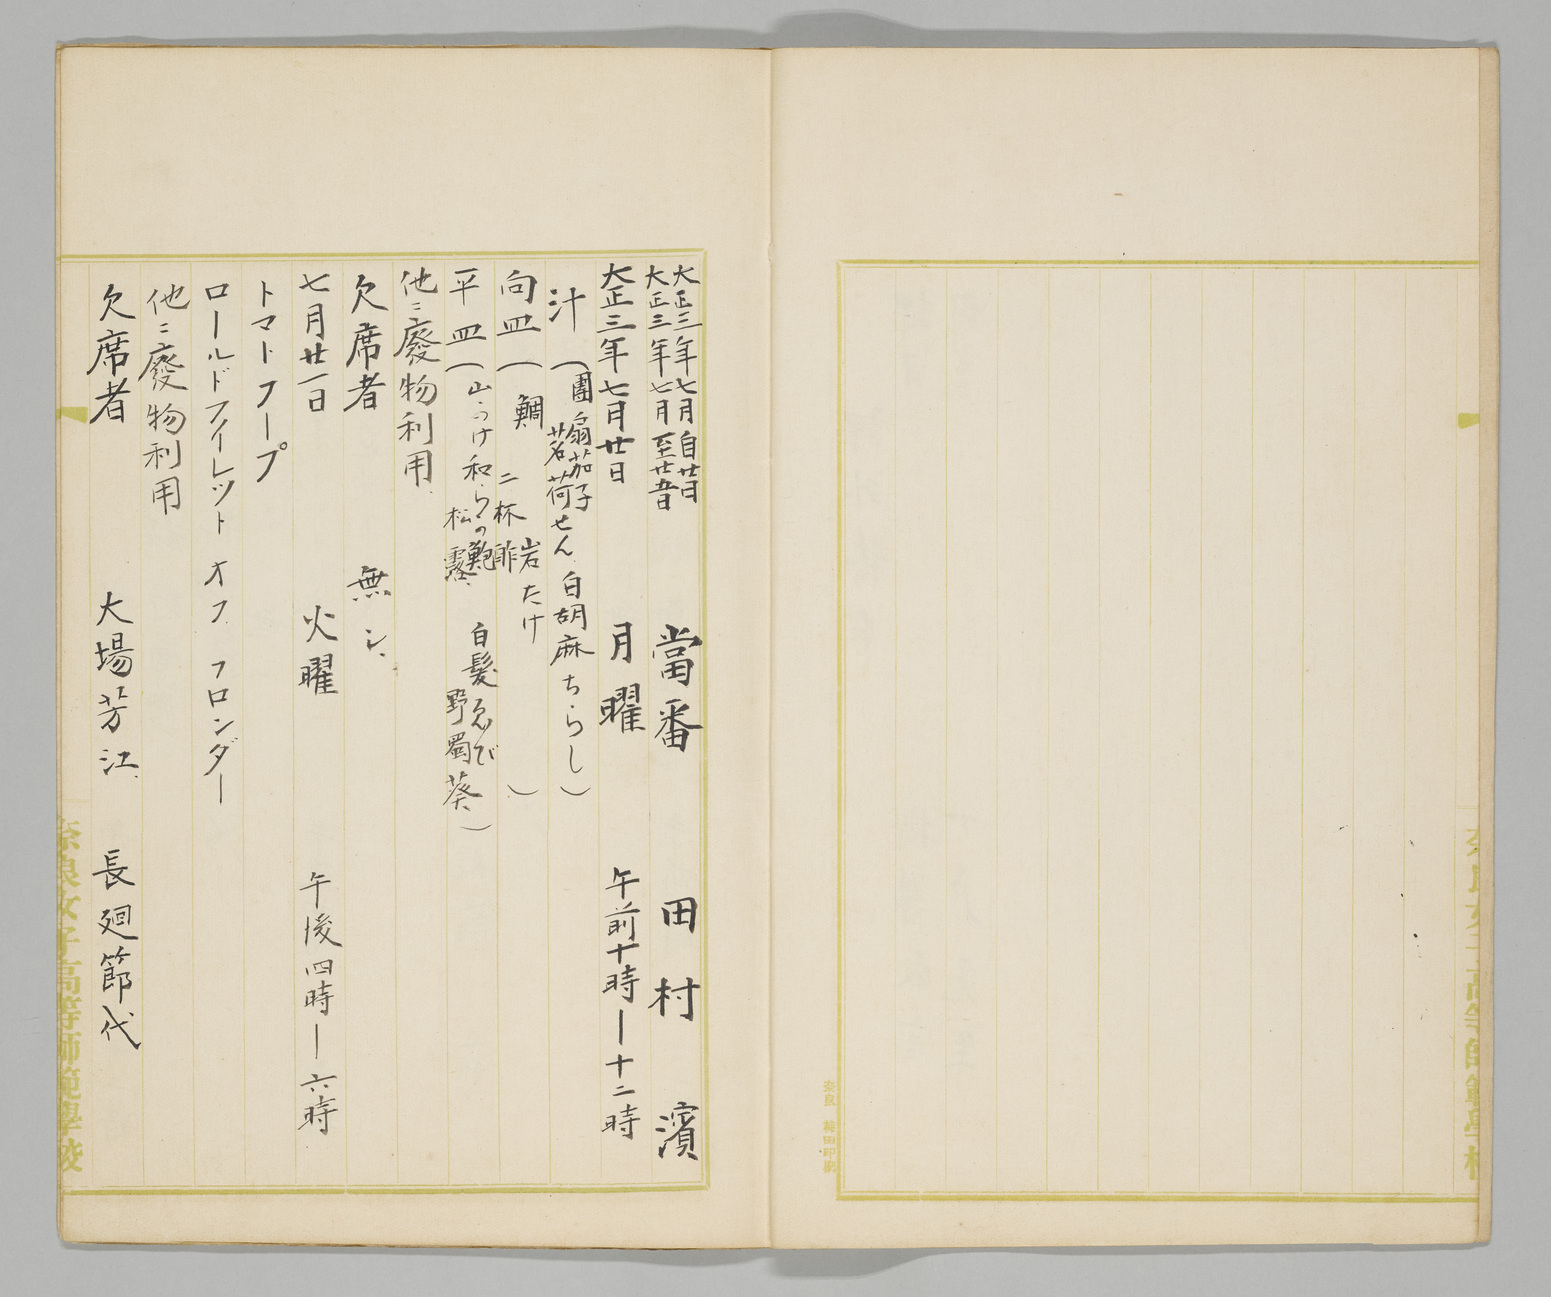 大正三年七月自廿日
大正三年七月至廿五日
當番 田村 濱
大正三年七月廿日 月曜 午前十時ー十二時
汁(團扇茄子 白胡麻ちらし)
茗荷せん
向皿(鯛 岩たけ)
二杯酢
平皿(山かけ和らの鮑 白髪ゑび
松露 野蜀葵)
他ニ廢物利用
欠席者 無シ
七月廿一日 火曜 午後四時ー六時
トマトフープ
ロールドフイレツト オフ フロンダー
他ニ廢物利用
欠席者 大場芳江 長廻節代
奈良女子高等師範學校
奈良女子高等師範學校